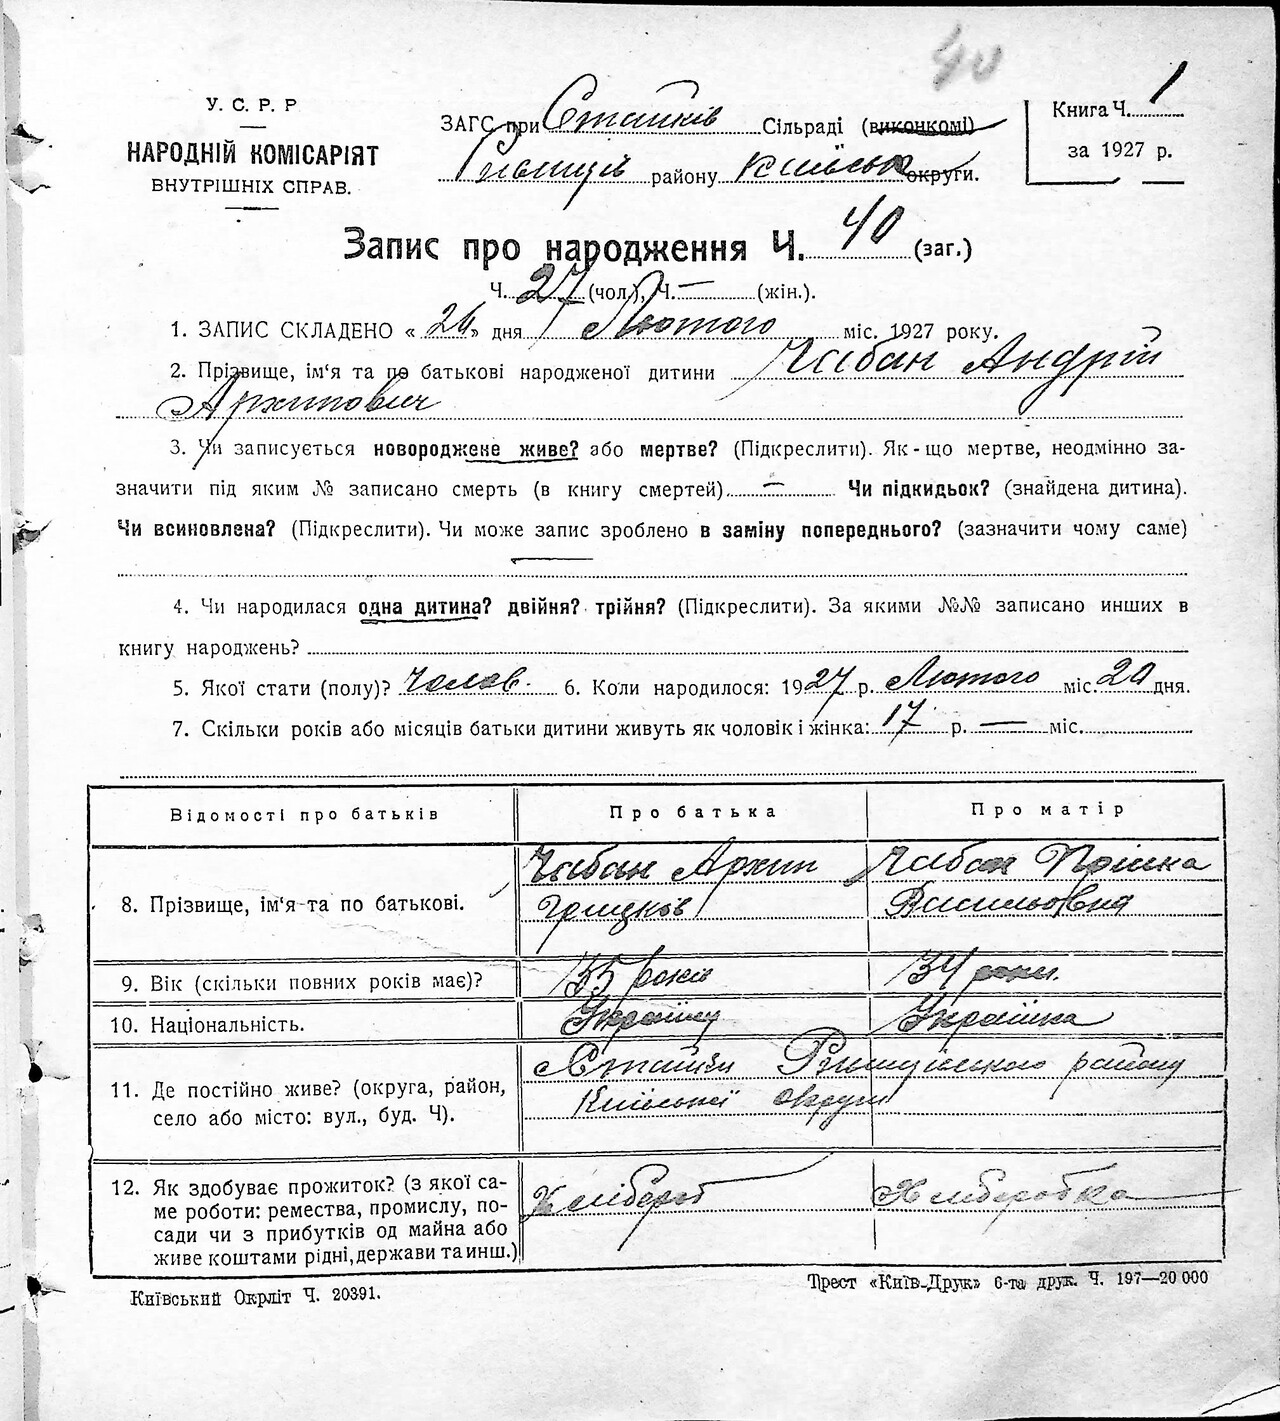 40
У. С. Р. Р
НАРОДНІЙ КОМІСАРІЯТ
ВНУТРІШНІХ СПРАВ.
ЗАГС при Стайків Сільраді (виконкомі)
району Київськ округи.
Книга Ч. 1
за 1927 р.
Запис про народження Ч. 40 (заг.)
Ч. 27 (чол.), Ч. — (жін.).
1. ЗАПИС СКЛАДЕНО « 26 » дня Лютого міс. 1927 року.
2. Прізвище, ім‘я та по батькові народженої дитини Чабан Андрій
Архипович
3. Чи записується новороджене живе? або мертве? (Підкреслити). Як-що мертве, неодмінно за-
значити під яким № записано смерть (в книгу смертей) — Чи підкидьок? (знайдена дитина).
Чи всиновлена? (Підкреслити). Чи може запис зроблено в заміну попереднього? (зазначити чому саме)
—
4. Чи народилася одна дитина? двійня? трійня? (Підкреслити). За якими №№ записано инших в
книгу народжень?
5. Якої стати (полу)? Чолов. 6. Коли народилося: 1927 р. Лютого міс. 20 дня.
7. Скільки років або місяців батьки дитини живуть як чоловік і жінка: 17 р. — міс.
Відомості про батьків Про батька Про матір
8. Прізвище, ім‘я та по батькові. Чабан Архип Грицков Чабан Васильовна
9. Вік (скільки повних років має)? 35 років 34 роки.
10. Національність. Українец Українка
11. Де постійно живе? (округа, район,
село або місто: вул., буд. Ч). Стайки району
Київської округи
12. Як здобуває прожиток? (з якої са-
ме роботи: ремества, промислу, по-
сади чи з прибутків од майна або
живе коштами рідні, держави та инш.) Хлібороб Хлиборобка
Київський Окрліт Ч. 20391.
Трест «Київ-Друк» 6-та друк. Ч. 197—20 000